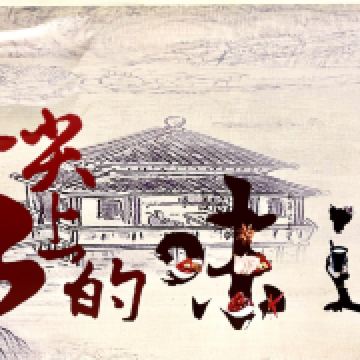 尖上的味